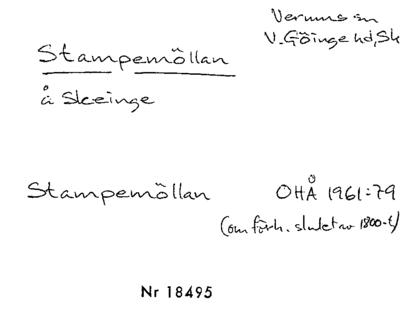 Verums sn
V. Göinge hd, Sk
Stampemöllan
å Skeinge
Stampemöllan OHÅ 1961:79
(om förh. slutet av 1800-t)
Nr 18495